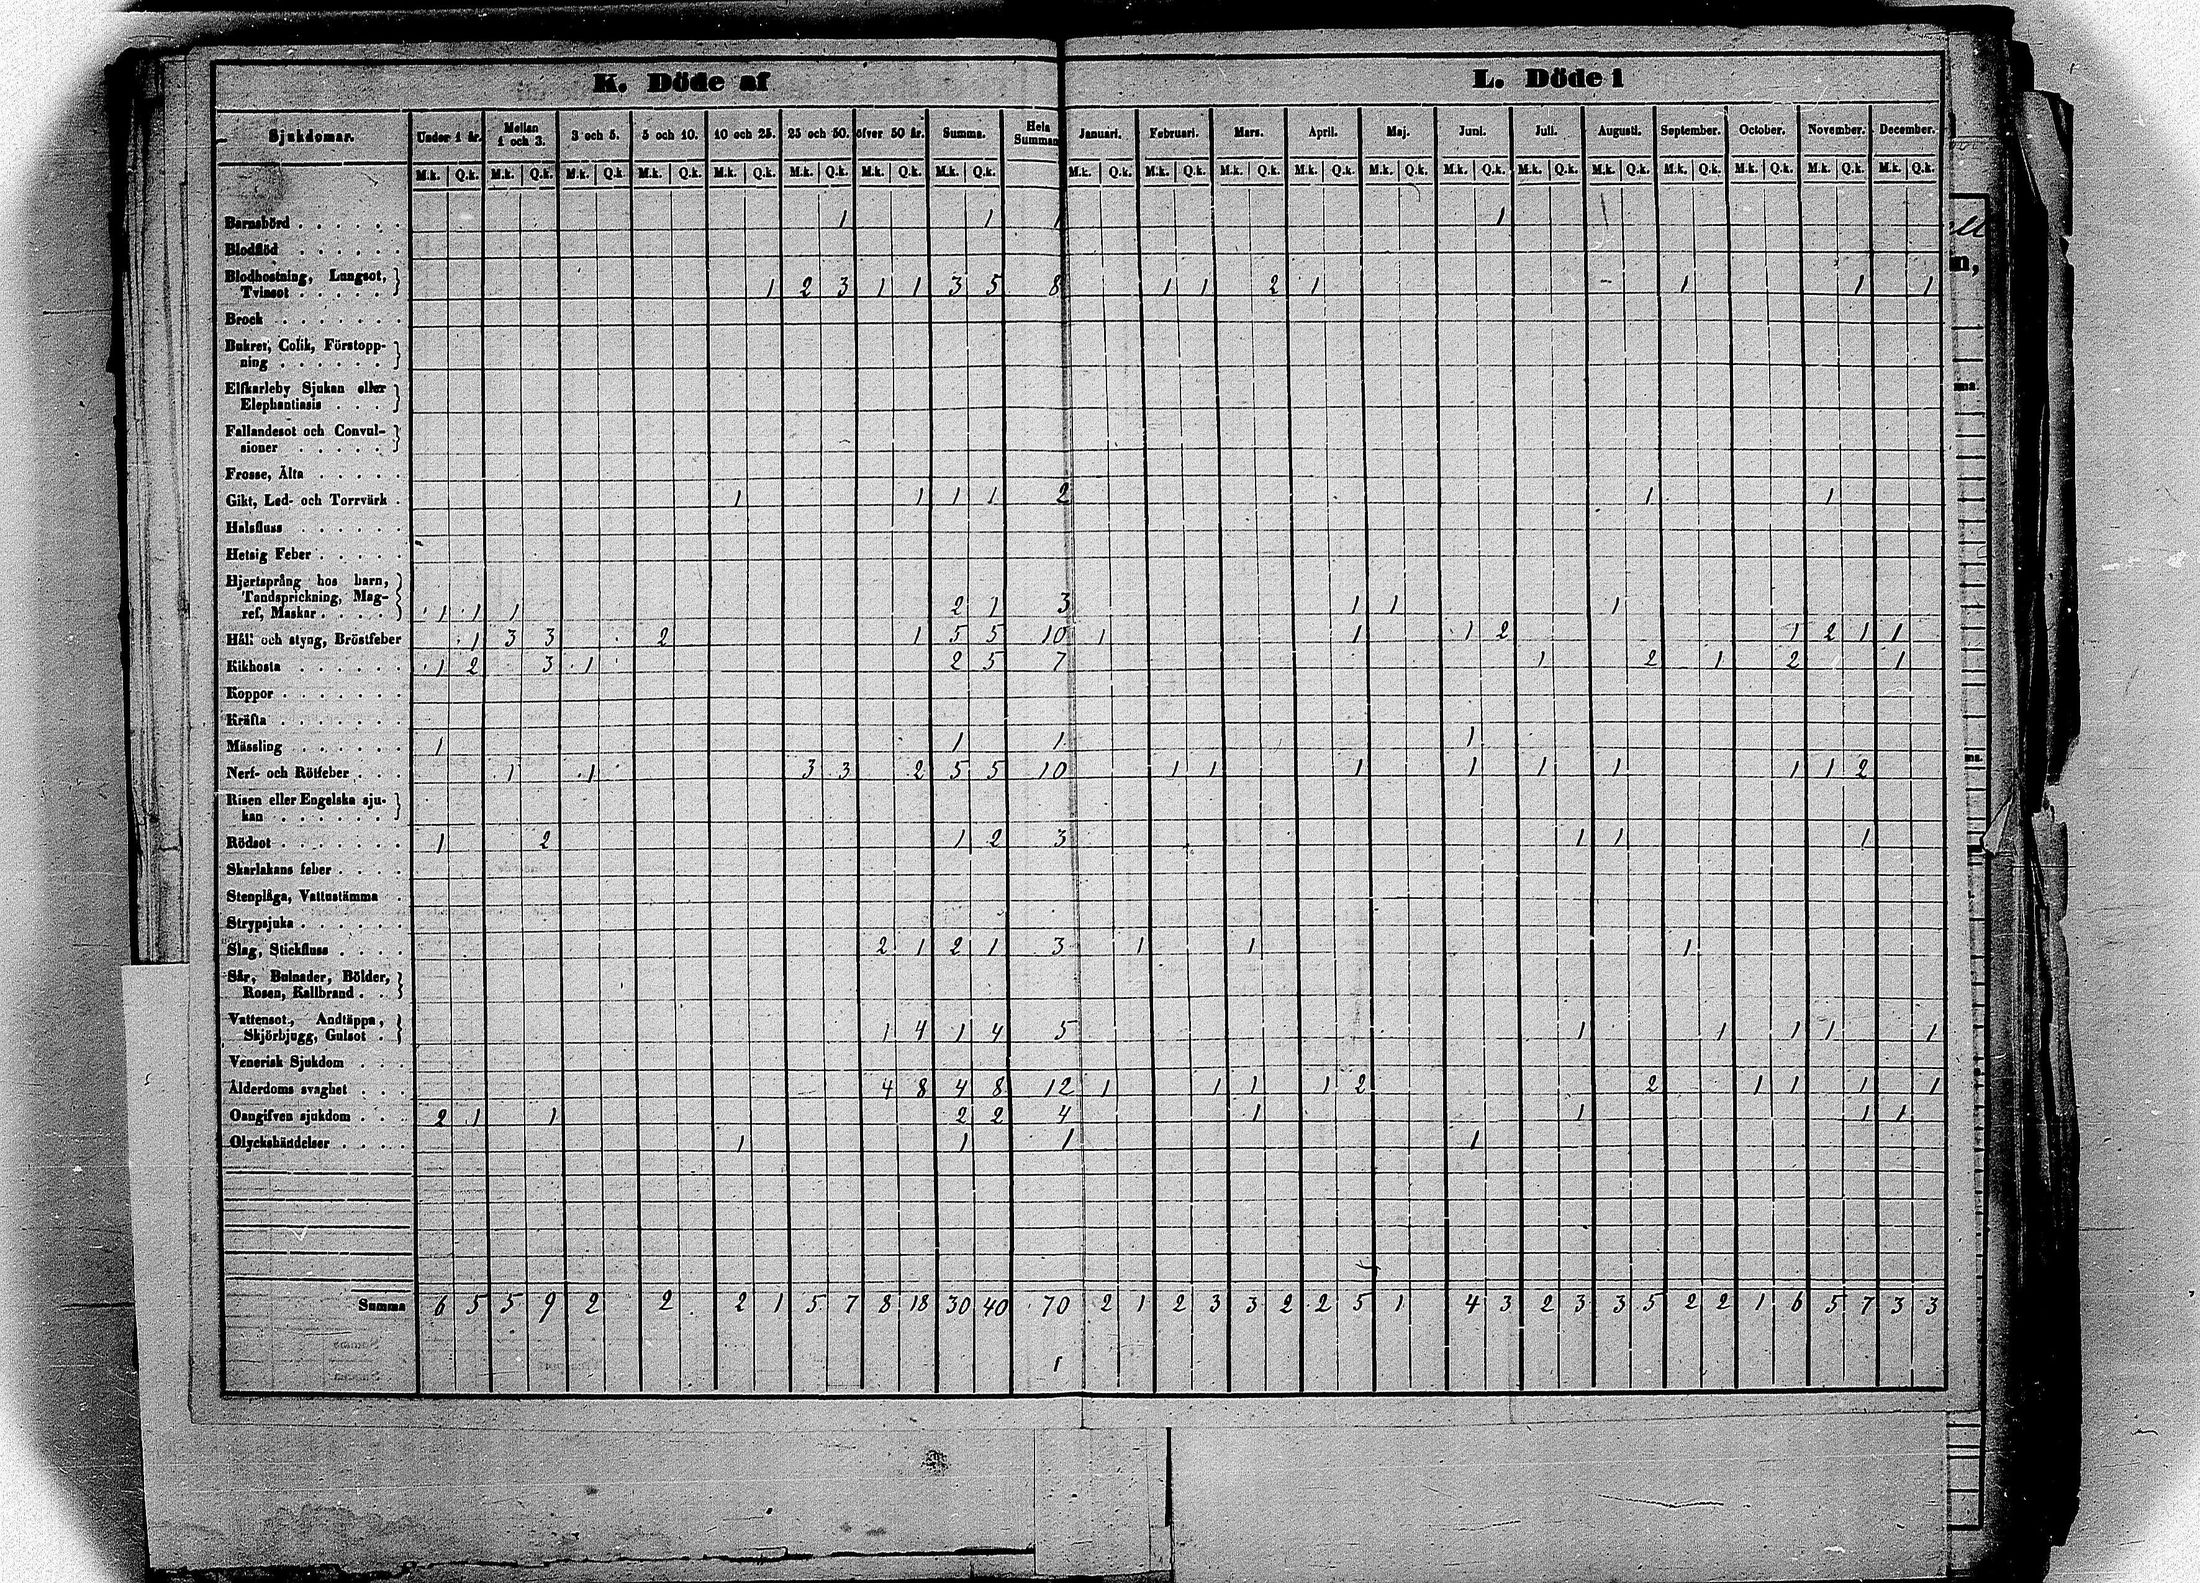 K. Döde af
L. Döde i
Sjukdomar. Under 1 år. Mellan 1 och 3. 3 och 5. 5 och 10. 10 och 25. 25 och 50. öfver 50 år. Summa. Hela Summan Januari. Februari. Mars. April. Maj. Juni. Juli. Augusti. September. October. November. December.
M.k. Q.k. M.k. Q.k. M.k. Q.k. M.k. Q.k. M.k. Q.k. M.k. Q.k. M.k. Q.k. M.k. Q.k. M.k. Q.k. M.k. Q.k. M.k. Q.k. M.k. Q.k. M.k. Q.k. M.k. Q.k. M.k. Q.k. M.k. Q.k. M.k. Q.k. M.k. Q.k. M.k. Q.k. M.k. Q.k.
Barnsbörd . . . . . . 1 1 1 1
Blodflöd . . . . . .
Blodhostning, Lungsot,
Tvinsot . . . . . 1 2 3 1 1 3 5 8 1 1 2 1 1 1 1
Brock . . . . . . .
Bukref, Colik, Förstopp-
ning . . . . . .
Elfkarleby Sjukan eller
Elephantiasis . . .
Fallandesot och Convul-
sioner . . . . .
Frosse, Älta . . . . .
Gikt, Led- och Torrvärk . 1 1 1 1 2 1 1
Halsfluss . . . . . .
Hetsig Feber . . . . .
Hjertsprång hos barn,
Tandsprickning, Mag-
ref, Maskar . . . . 1 1 1 2 1 3 1 1 1
Håll och styng, Bröstfeber 1 3 3 2 1 5 5 10 1 1 1 2 1 2 1 1
Kikhosta . . . . . . 1 2 3 1 2 5 7 1 2 1 2 1
Koppor . . . . . . .
Kräfta . . . . . . .
Mässling . . . . . . 1 1 1 1
Nerf- och Rötfeber . . . 1 1 3 3 2 5 5 10 1 1 1 1 1 1 1 1 2
Risen eller Engelska sju-
kan . . . . . .
Rödsot . . . . . . . 1 2 1 2 3 1 1 1
Skarlakans feber . . . .
Stenplåga, Vattustämma .
Strypsjuka . . . . . .
Slag, Stickfluss . . . . 2 1 2 1 3 1 1 1
Sår, Bulnader, Bölder,
Rosen, Kallbrand . .
Vattensot, Andtäppa,
Skjörbjugg, Gulsot . 1 4 1 4 5 1 1 1 1 1
Venerisk Sjukdom . . .
Ålderdoms svaghet . . . 4 8 4 8 12 1 1 1 1 2 2 1 1 1 1
Oangifven sjukdom . . . 2 1 1 2 2 4 1 1 1 1
Olyckshändelser . . . . 1 1 1 1
Summa 6 5 5 9 2 2 2 1 5 7 8 18 30 40 70 2 1 2 3 3 2 2 5 1 4 3 2 3 3 5 2 2 1 6 5 7 3 3